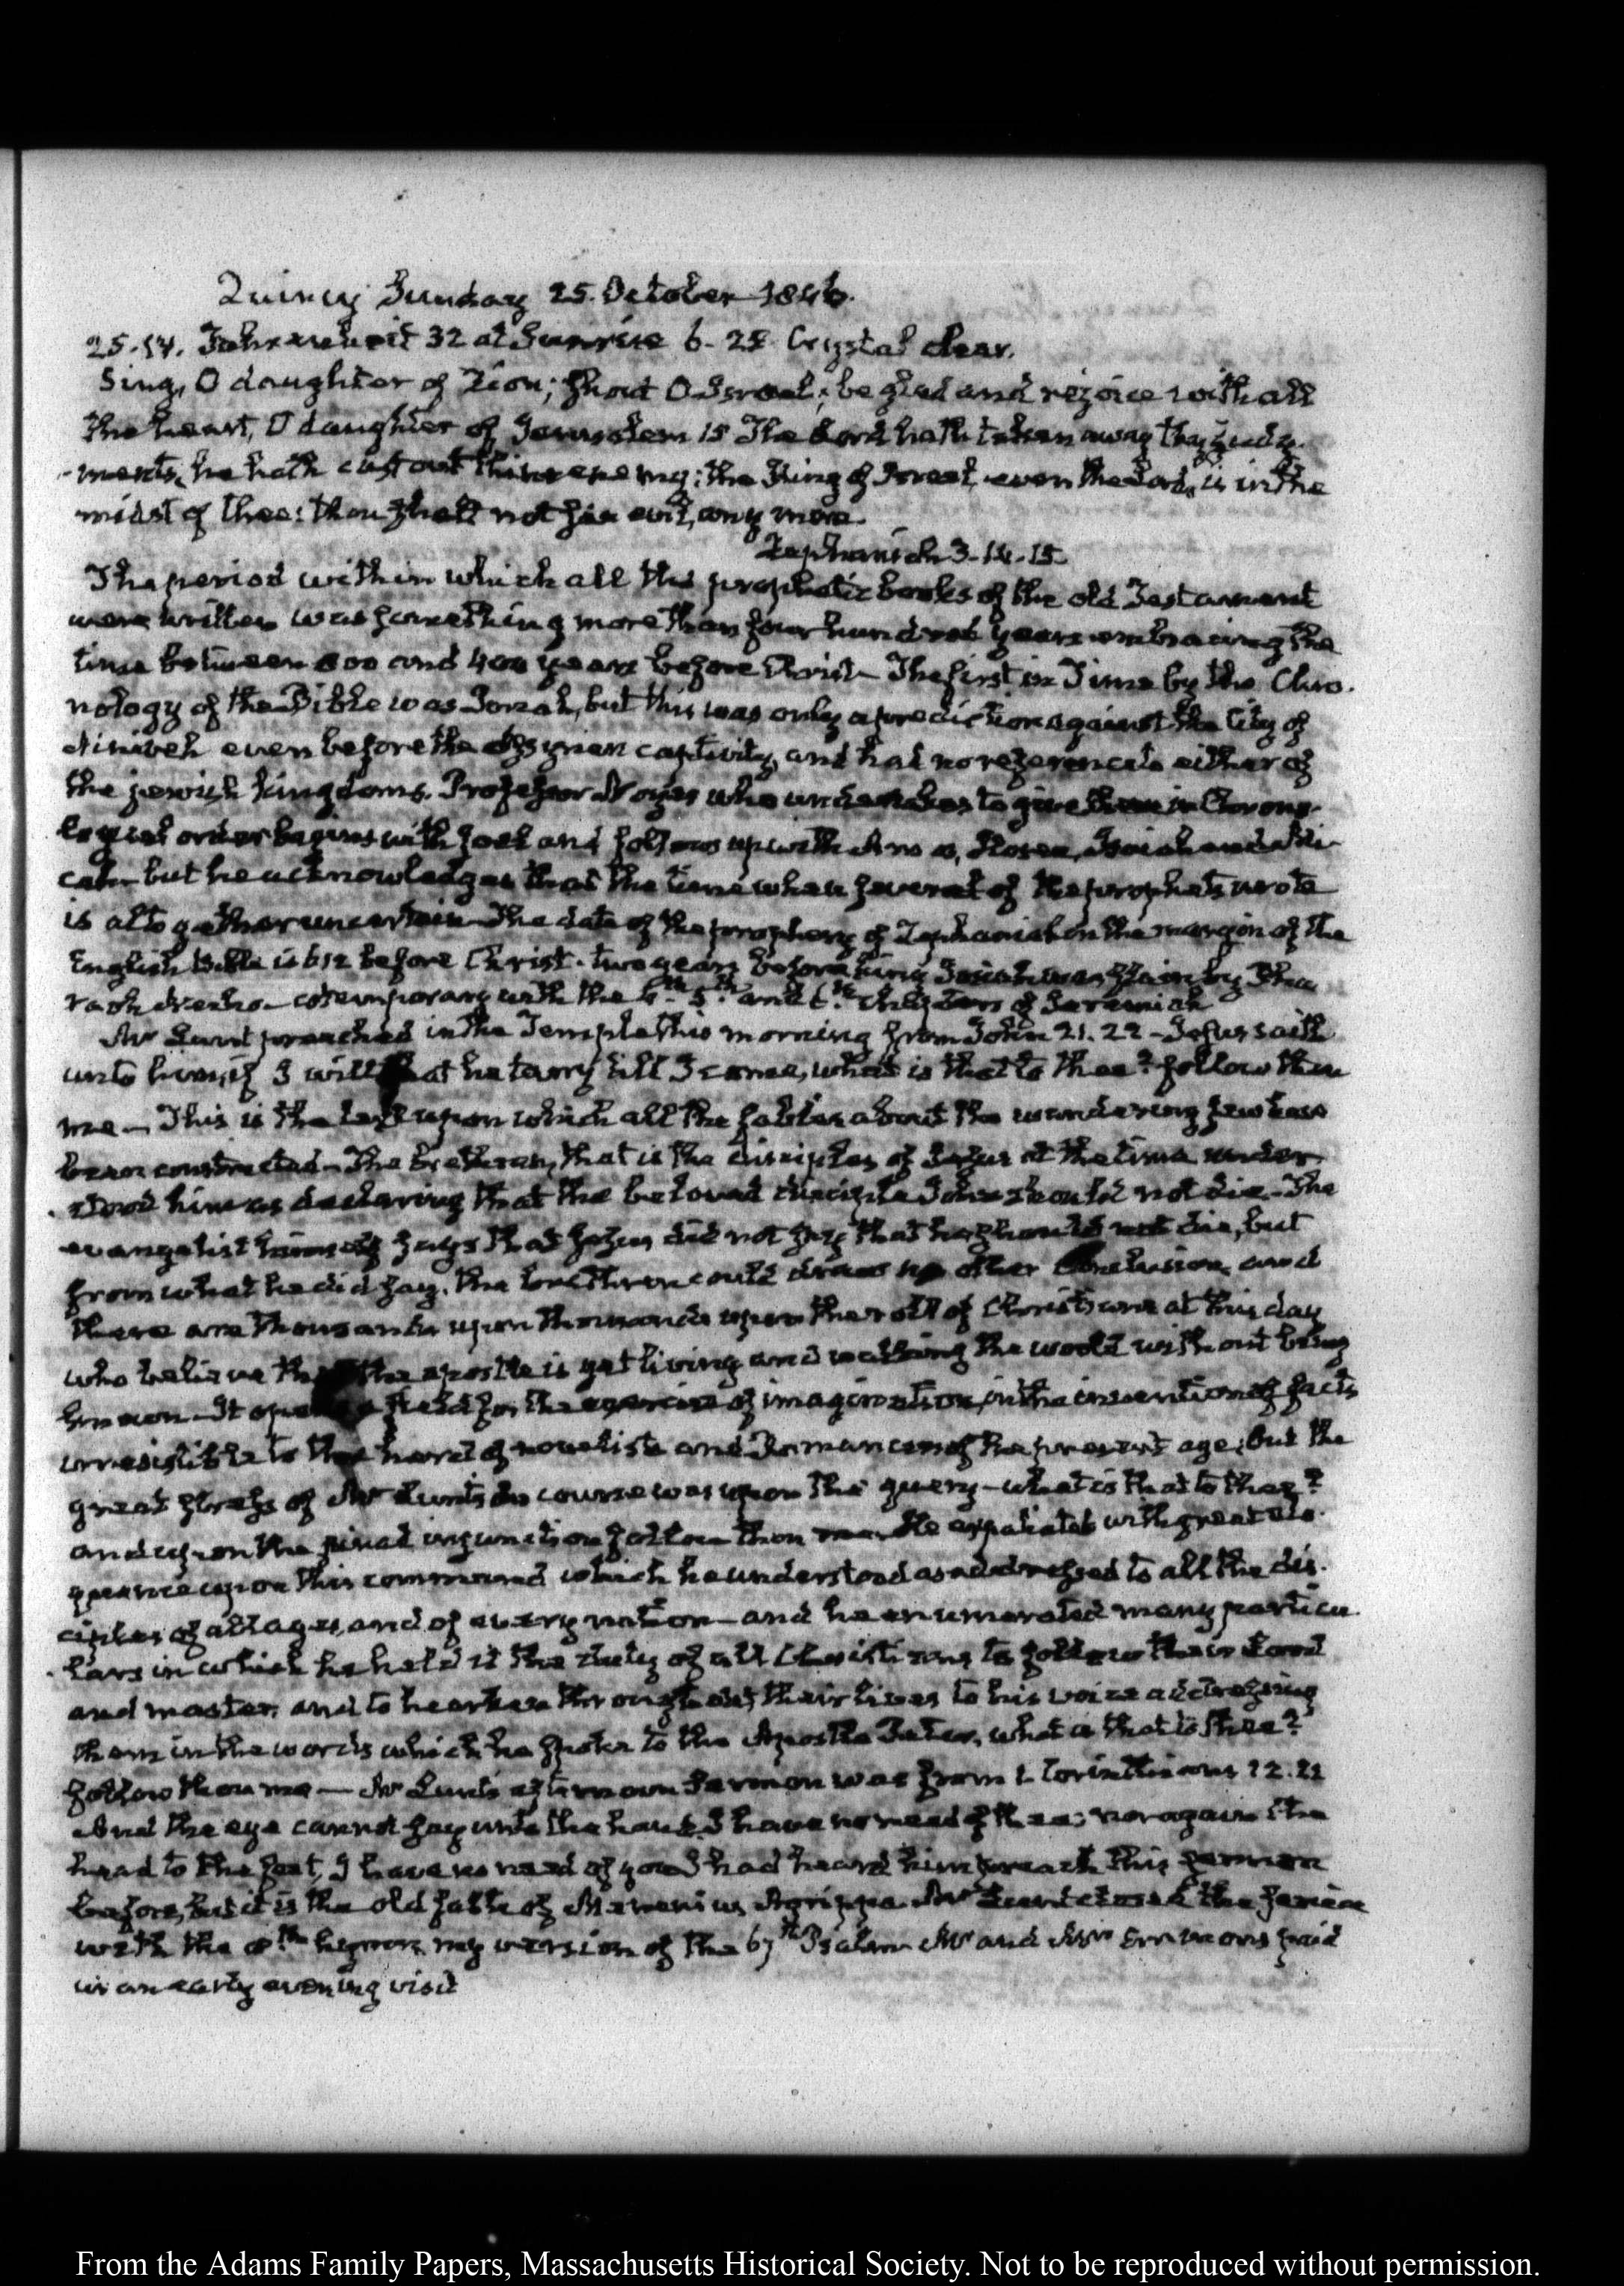 Quincy Sunday 25. October 1846.
25.IV. Fahrenheit 32 at Sunrise 6-25 Crystal clear.
Sing, O daughter of Zion; shout O Israel; be glad and rejoice with all
the heart, O daughter of Jerusalem 15 The Lord hath taken away thy judg-
-ments, he hath cast out thine enemy: the King of Israel, even the Lord, is in the
midst of thee: thou shalt not see evil, any more.
Zephaniah 3-14.15.
The period within which all the prophetic books of the old Testament
were written was something more than four hundred years embracing the
time between 800 and 400 years before Christ— The first in Time by the Chro-
nology of the Bible was Jonah, but this was only a prediction against the City of
Niniveh even before the Assyrian captivity, and had no reference to either of
the jewish kingdoms. Professor Noyes who undertakes to give them in Chrono-
logical order begins with Joel and follows up with Amos, Hosea, Isaiah and Mi-
cah— but he acknowledges that the time when several of the prophets wrote
is altogether uncertain— The date of the prophecy of Zephaniah on the margin of the
English Bible is 612 before Christ. two years before king Josiah was slain by Pha
raoh Necho— cotemporary with the 4th 5th and 6th Chapters of Jeremiah
Mr Lunt preached in the Temple this morning from John 21.22— Jesus saith
unto him, if I will that he tarry till I come, what is that to thee? follow thou
me— This is the text upon which all the fables about the wandering jew have
been constructed— The brethren, that is the disciples of Jesus at the time under-
-stood him as declaring that the beloved disciple John should not die— The
evangelist himself says that Jesus did not say that he should not die, but
from what he did say, the brethren could draw no other conclusion, and
there are thousands upon thousands upon the roll of Christians at this day
who believe that the apostle is yet living and walking the world without being
known— It opens a field for the exercise of imagination, in the invention of facts
irresistible to the herd of novelists and Romancers of the present age; but the
great stress of Mr Lunt's discourse was upon the query— what is that to thee?
and upon the final injunction follow thou me— He expatiated with great elo-
quence upon this command which he understood as addressed to all the dis-
ciples of all ages, and of every nation— and he enumerated many particu-
-lars in which he held it the duty of all Christians to follow their Lord
and master, and to hearken throughout their lives to his voice addressing
them in the words which he spoke to the Apostle Peter, what is that to thee?
follow thou me— Mr Lunt's afternoon Sermon was from 1 Corinthians 12.21
And the eye cannot say unto the hand, I have no need of thee: nor again the
head to the feet, I have no need of you I had heard him preach this sermon
before, but it is the old fable of Menenius Agrippa. Mr Lunt closed the service
with the 8th hymn, my version of the 67th Psalm Mr and Mrs Emmons paid
us an early evening visit
From the Adams Family Papers, Massachusetts Historical Society. Not to be reproduced without permission.